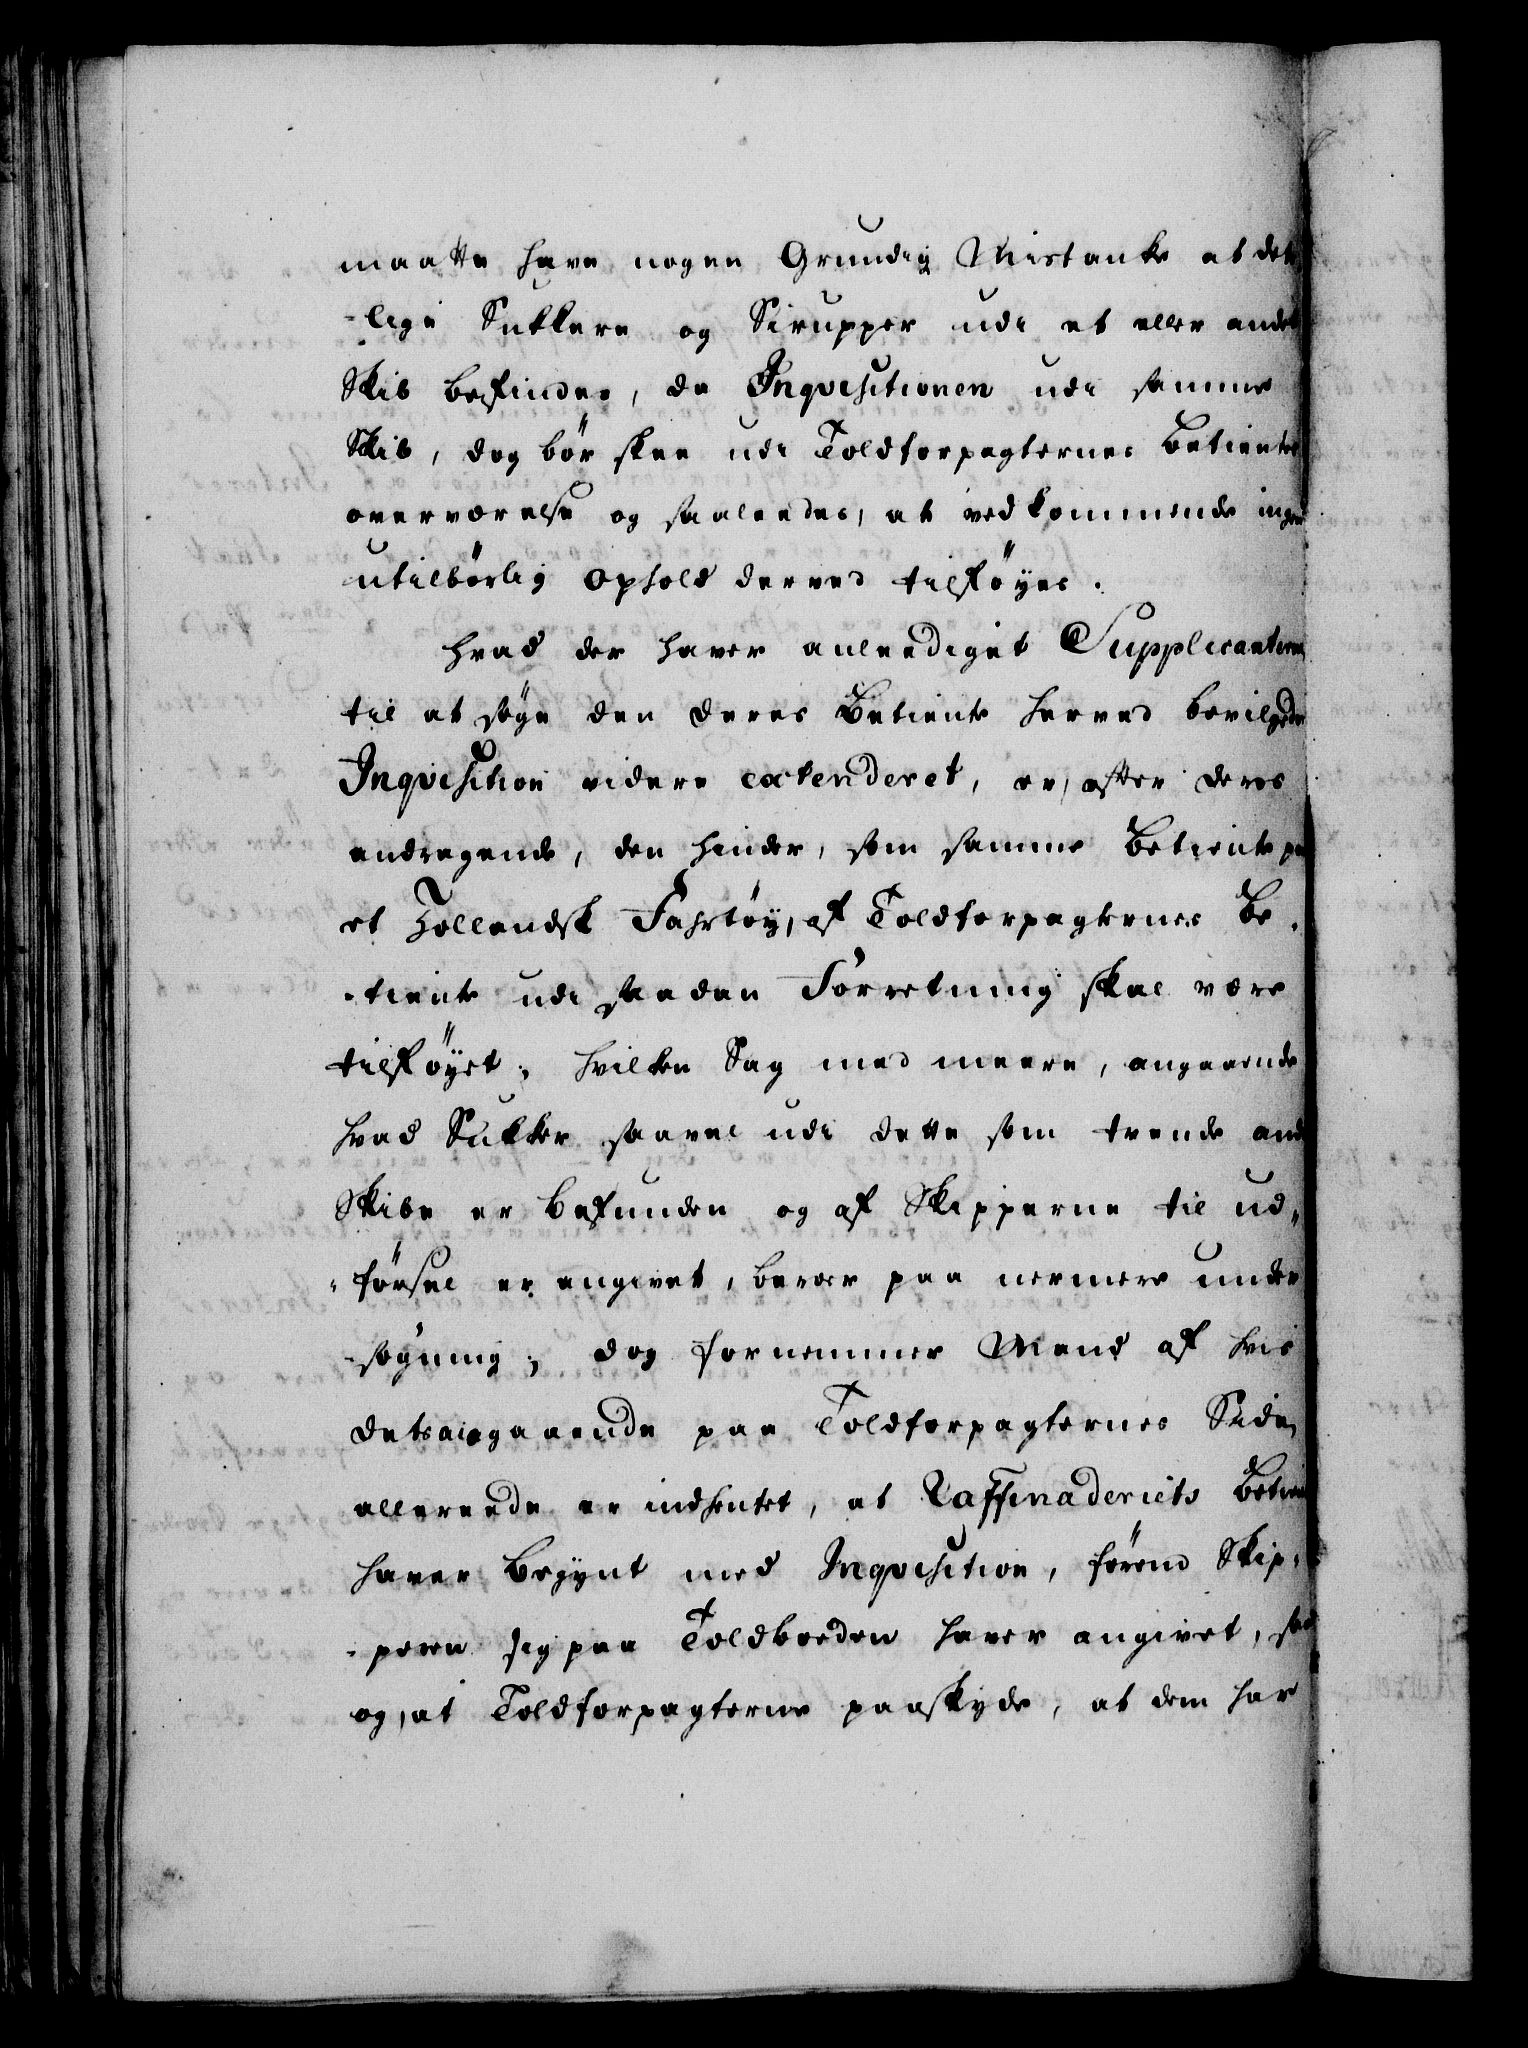 maatte have nogen Grundig Mistanke at det
-lige Sukkere og Sirupper udi et eller andet
Skib befindes, da Inqvisitionen udi samme
Skib, dog bør skee udi Toldforpagternes Betientes
overværelse og saaleedes, at vedkommende ingen
utilbørlig Ophold derved tilføyes.
Hvad der haver anleediget Supplicanterne
til at søge den deres Betiente herved bevilgede
Inqvisition videre extenderet, er, efter deres
andragende, den hinder, som samme Betiente paa
et Hollandsk Fahrtøy, af Toldforpagternes Be-
-tiente udi saadan Forretning skal være
tilføyet; hvilken Sag med meere, angaaende
hvad Sukker saavel udi dette som tvende andre
Skibe er befunden og af Skipperne til ud-
-førsel er angivet, beroer paa nermere under
-søgning; dog fornemmer Mand af hvis
detsangaaende paa Toldforpagternes Side
allereede er indhentet, at Raffinaderiets Betiente
haver begynt med Inqvisition, førend Skip-
-peren sig paa Toldboeden haver angivet, saa
og, at Toldforpagterne paaskyde, at dem har